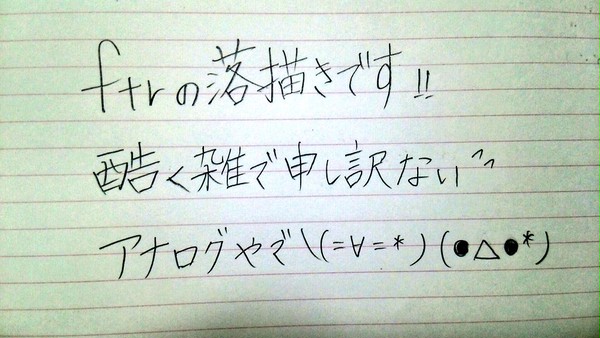 ftrの落描きです!!
酷く雑で申し訳ない^^
アナログやで\(=∀=*)(●△●*)